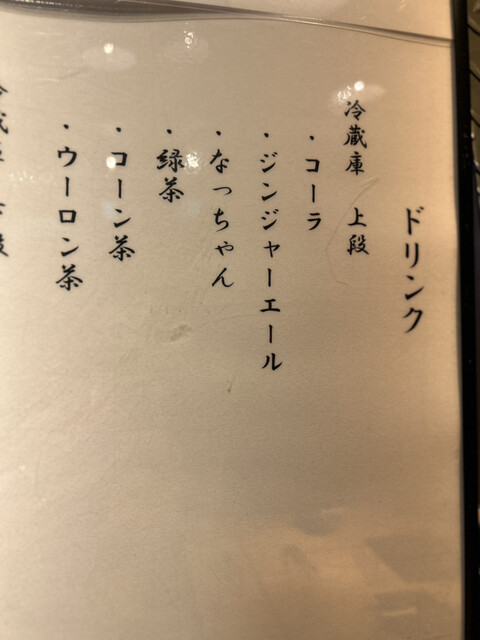 ドリンク
冷蔵庫 上段
・コーラ
・ジンジャーエール
・なっちゃん
・緑茶
・コーン茶
・ウーロン茶